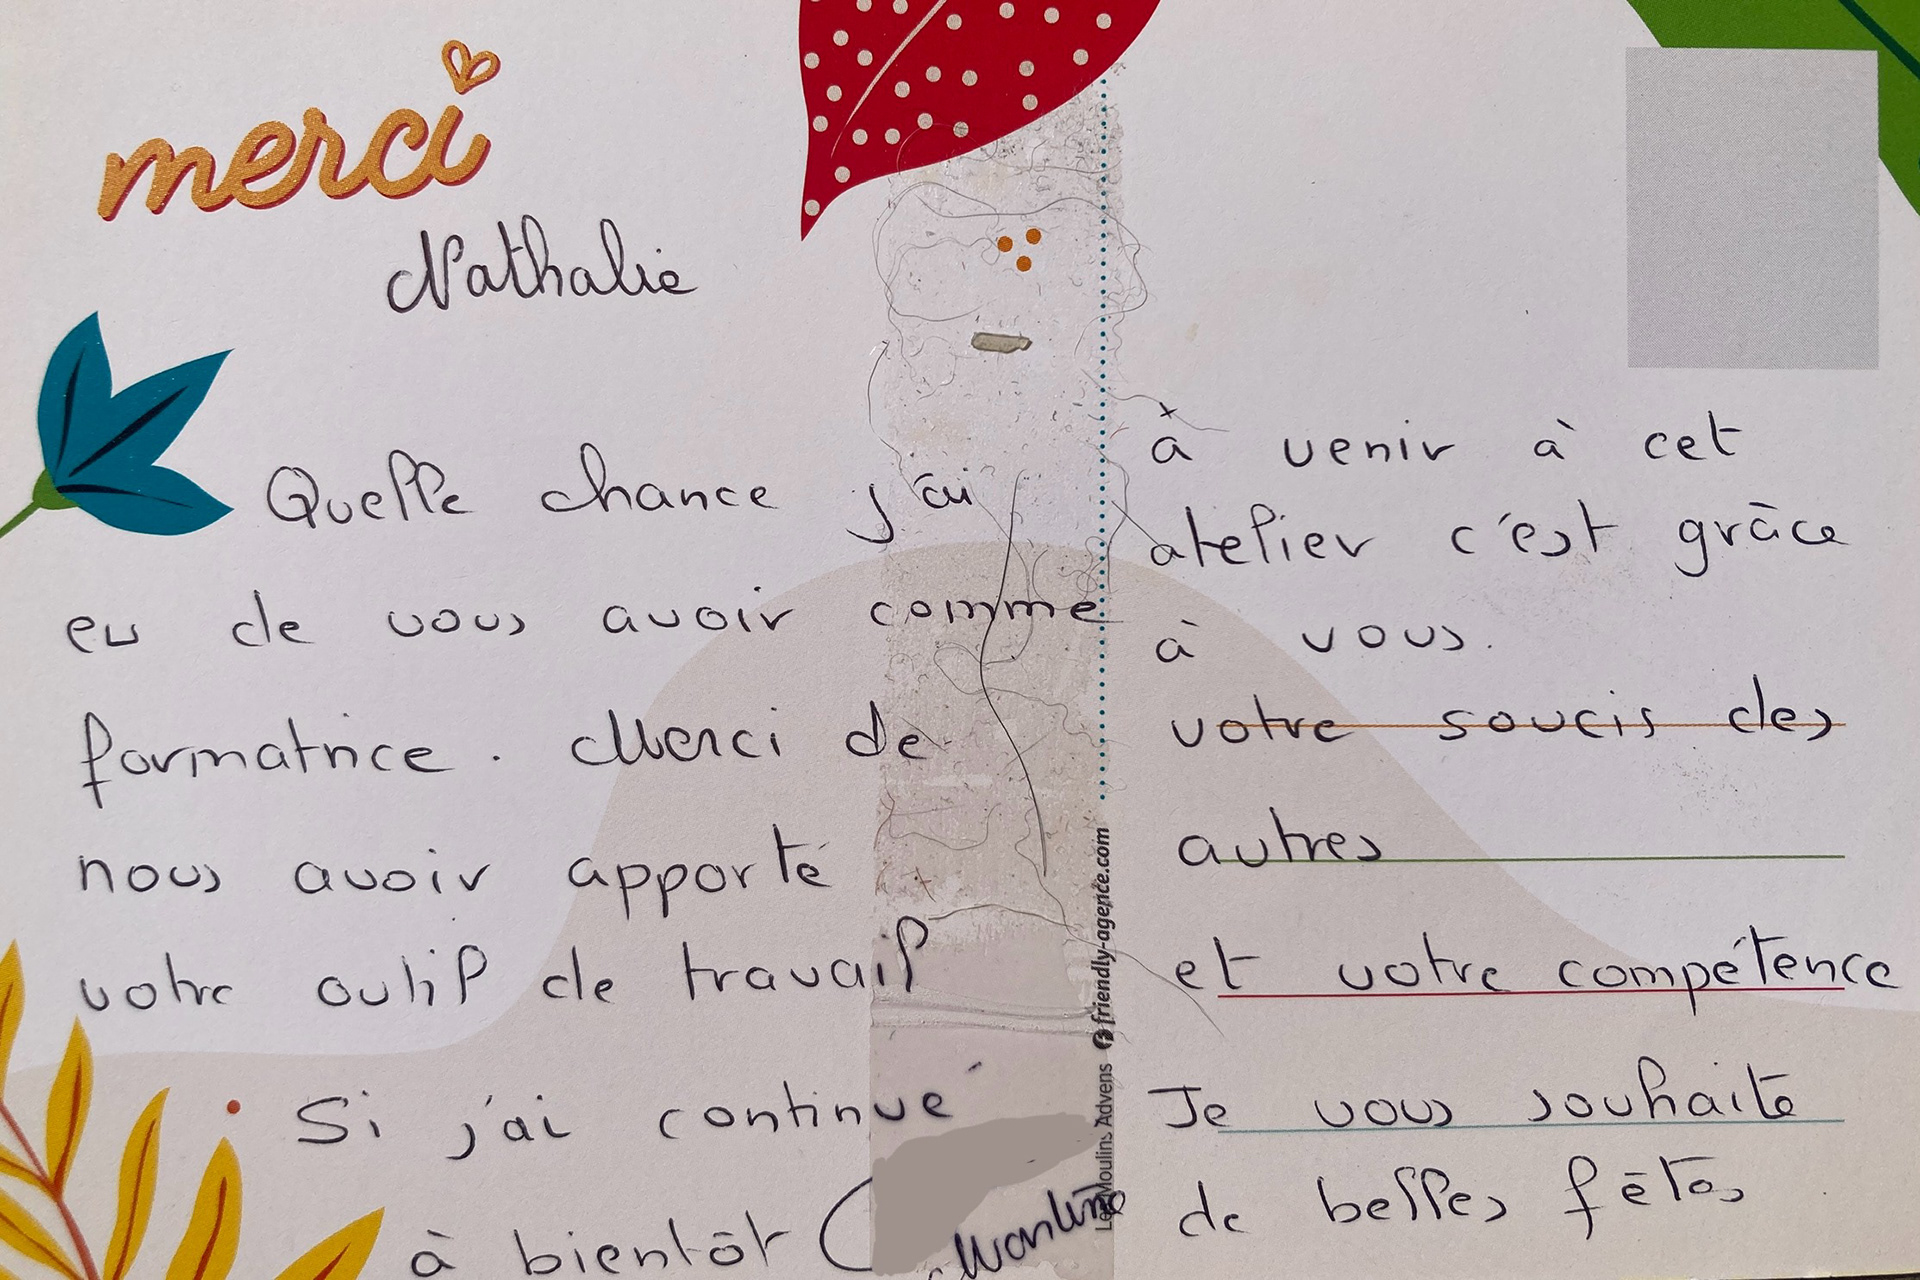 merci
Nathalie
Quelle chance j'ai
eu de vous avoir comme
formatrice. Merci de
nous avoir apporté
votre outil de travail
Si j'ai continué
à bientôt
Martine
à venir à cet
atelier c'est grâce
à vous.
votre soucis des
autres
et votre compétence
Je vous souhaite
de belles fêtes
Les Moulins Advens friendly-agence.com